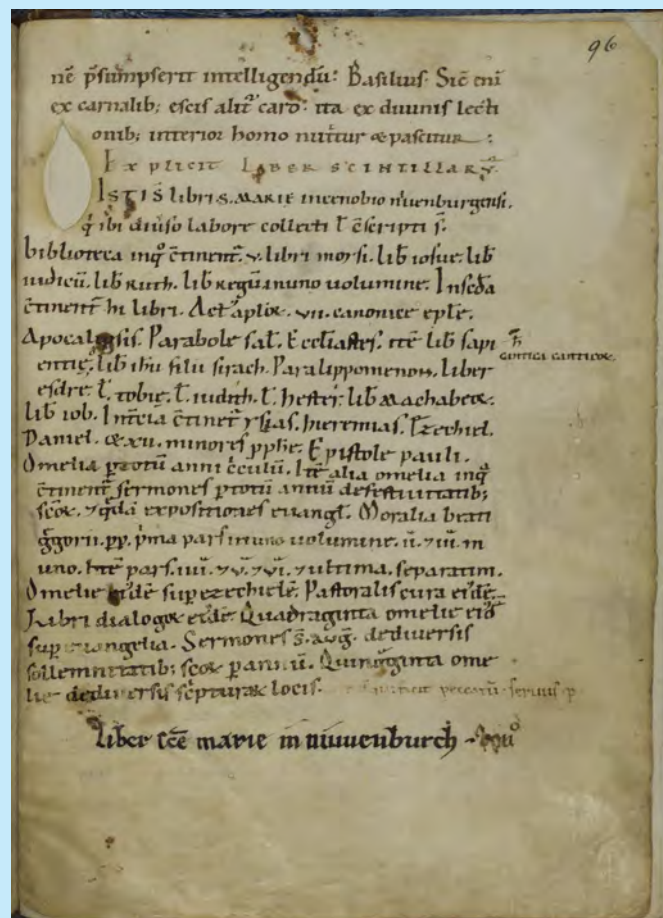 96
nē p̄sumpserit intelligendū: Basilius. Sic̄ eni
ex carnalib; escis alit̄ caro: ita ex diuinis lecti
onib; interior homo nutit̄ur & pascitur:
Explicit LIBER SCINTILLARV̄.
ISTI S̄ libri S. MARIE incenobio niuenburgensi.
q̇ ibi diuiso labore collecti ł c̄scripti s̄.
bibliotheca inq̇ c̄tinent̄. v. libri moysi. lib̄ iosue. lib̄
iudicū. lib̄ Ruth. lib̄ Regū inuno uolumine. Insc̄da
c̄tinent̄ hi libri. Act᷒ aplōꝝ. vii. canonice eplē.
Apocalipsis. Parabole sal̄. Eccl̄iastes. itē lib̄ sapi
cantica canticoꝝ.
entię. lib̄ ihū filii sirach. Paralippomenon. Liber
esdre. ł. tobię. ł. iudith. ł. hester. lib̄ Machabeoꝝ.
lib̄ iob. Int̄cia c̄tinet̄ ysaias. hieremias. Ezechiel.
Daniel. & xii. minores pphē. Epistole pauli.
Omelia p totū anni c̄culū. Itē alia omelia inq̇
c̄tinent̄ sermones p totū annū defestiuitatib;
sc̄oꝝ. ⁊ q̇dā expositiones euangł. Moralia beati
g̊gorii. pp. p̄ma pars inuno uolumine. ii. ⁊ iii. in
uno. Itē pars. iiii. ⁊ v. ⁊ vi. ⁊ ultima. separatim.
Omelie ei᷒dē sup ezechielē. Pastoralis cura ei᷒dē.
Libri dialogoꝝ ei᷒dē. Quadraginta omelie ei᷒d̄
sup euangelia. Sermones s̄. aug̅. dediuersis
sollemnitatib; sc̄oꝝ p annū. Quinq̇ginta ome
lie dediuersis sc̄pturaꝝ locis.
Liber sc̄ē marie in niuuenburch